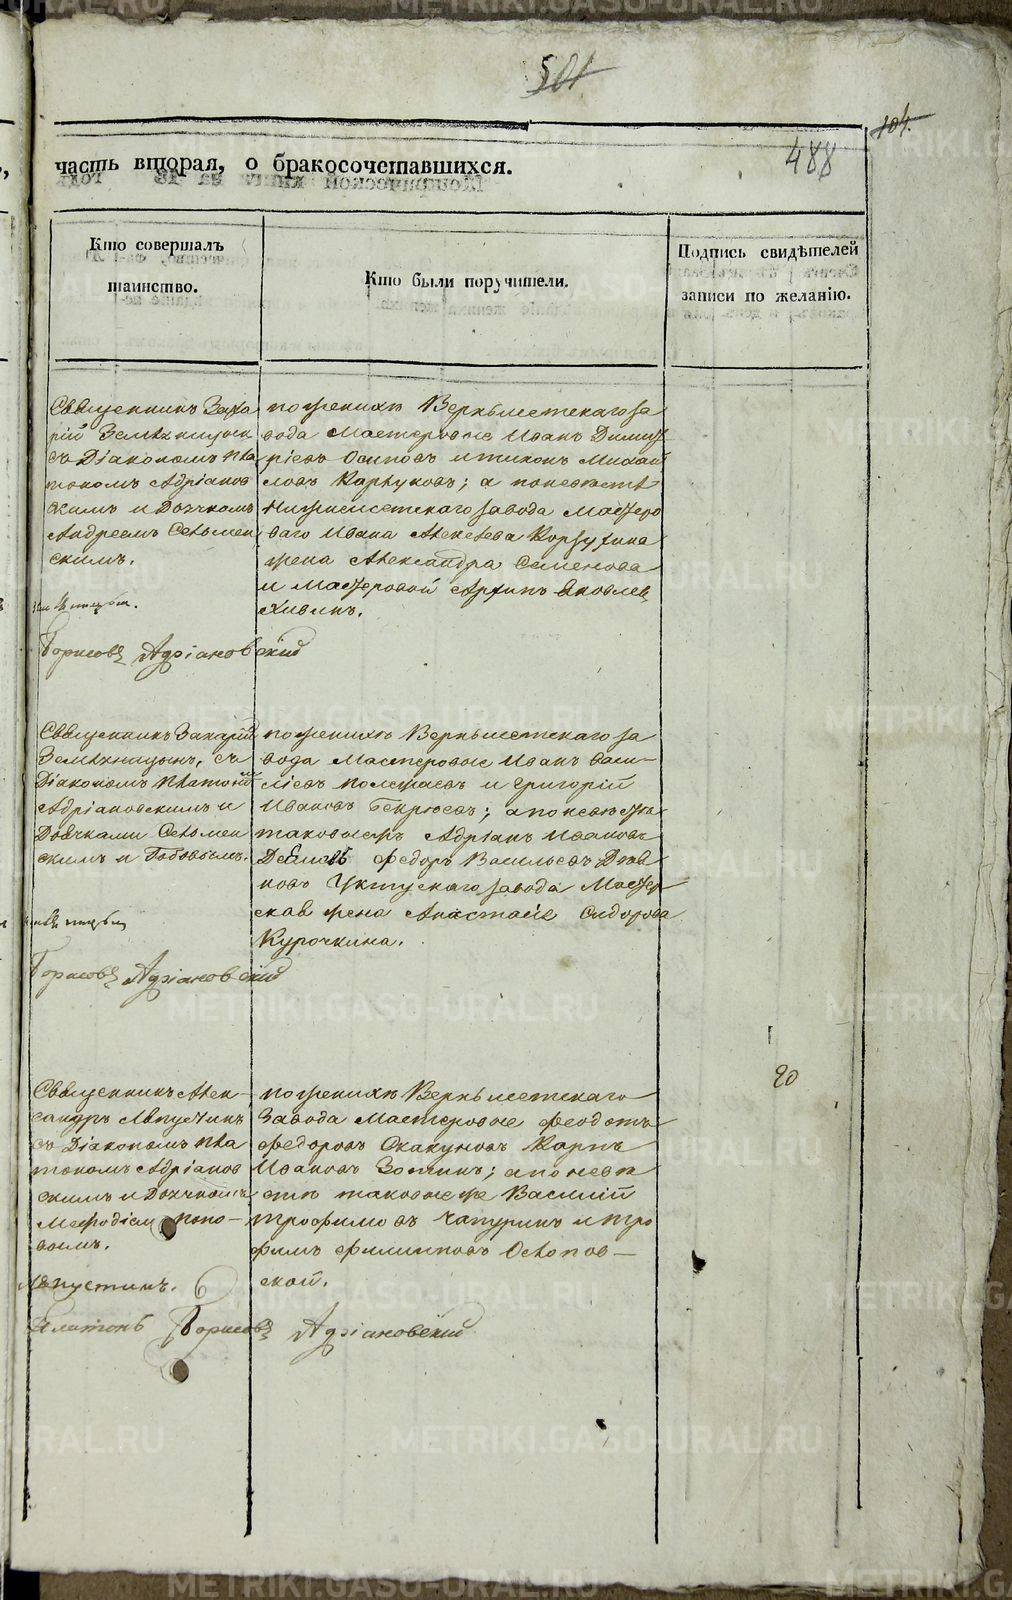 501
104.
488
часть вторая, о бракосочетавшихся.
Кто совершалъ
таинство.
Кто были поручители.
Подпись свидѣтелей
записи по желанію.
Священникъ Заха
рій
съ Діакономъ Пла
тономъ Адріанов
скимъ и Дьячкомъ
Андреемъ Сельмен
скимъ.
Борисовъ Адріановскій
по женихѣ Верхъисетскаго за
вода Мастеровые Иванъ Димит
ріевъ Осиповъ и Тихонъ Михай
ловъ Карпуковъ; а по невѣстѣ
Нижнеисетскаго завода Мастеро
ваго Ивана Алексѣева
жена Александра Семенова
и Мастеровой Архипъ Яковлев
Хивинъ.
Священникъ Захарій
Земляницынъ, съ
Діакономъ Платоном
Адріановскимъ и
Дьячками Сельмен
скимъ и Поповымъ.
Борисовъ Адріановскій
по женихѣ Верхъисетскаго за
вода Мастеровые Иванъ Васи-
ліевъ и Григорій
Ивановъ; а по невѣстѣ
таковыежъ Адріанъ Ивановъ
Федоръ Васильевъ
Уктусскаго завода Мастер
ская жена Анастасія Сидорова
Курочкина.
20
Священникъ Алек-
сандръ
съ Діакономъ Пла
тономъ Адріанов
скимъ и Дьячкомъ
Мефодіем Попо-
вымъ.
Платонъ Борисовъ Адріановскій
по женихѣ Верхъисетскаго
Завода Мастеровые Феодотъ
Федоровъ Скакуновъ Карпъ
Ивановъ Зотинъ; а по невѣ
стѣ таковые же Василій
Трофимовъ Чапуринъ и Тро
фимъ Филипповъ Осколков-
ской.
METRIKI.GASO-URAL.RU